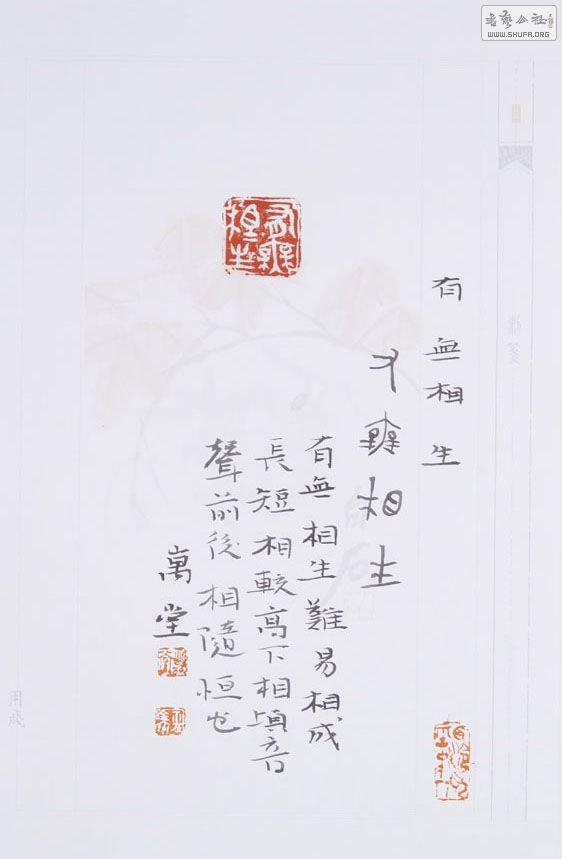 書藝公社
WWW.SHUFA.ORG
有無相生
有無相生
有無相生
有無相生難易相成
長短相較高下相傾音
聲前後相隨恒也
萬堂
白石